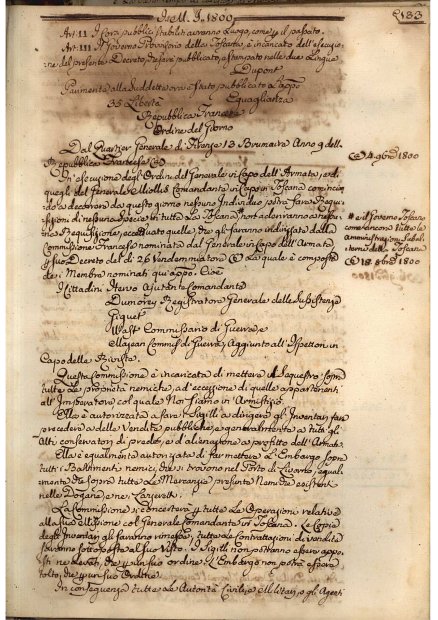 1800
183
Art: II I Corsi pubblici stabiliti avranno Luogo, come per il passato.
Art: III Il Governo Provvisorio della Toscana, è incaricato dell'esecuzio-
ne del presente Decreto, pubblicato, e stampato nelle due Lingue
Dupont
Parimente alla suddetta ora è stato pubblicato l'appo
35 Libertà Eguaglianza
Repubblica Francese
Ordine del Giorno
Dal Quartier Generale di Firenze 13 Brumaire Anno 9 della
Repubblica Francese
1800
In esecuzione degli Ordini del Generale in Capo dell'Armata, e di
quegli del Generale Miollis Comandante in Capo in Toscana comincian-
do a decorrere da questo giorno nessuno Individuo potrà fare Requi-
sizioni di nessuna specie in tutta la Toscana,
Requisizione, eccettuato quelle, che gli saranno indirizzate dalla
Commissione Francese nominata dal Generale in Capo dell'Armata
suo Decreto del dì 26 Vendemmiatore La quale è composta
dei Membri nominati qui appo. Cioè
e il Governo Toscano
come ancora tutte le
Amministrazioni
della Toscana
1800
I Cittadini Aiutante Comandante
Registratore Generale delle Sussistenze
Commissario di Guerra, e
Commiss. di Guerra, Aggiunto all'Ispettor in
Capo delle Riviste.
Questa Commissione è incaricata di mettere il sequestro sopra
tutte le proprietà nemiche, ad eccezione di quelle appartenenti
all'Imperatore col quale Noi siamo in Armistizio.
Ella è autorizzata a fare i Sigilli a dirigere gli Inventari, fare
procedere a delle Vendite pubbliche, e generalmente a tutti gli
Atti conservatori di prede, e di alienazione a profitto dell'Armata.
Ella è egualmente autorizzata di far mettere l'Embargo sopra
tutti i Bastimenti nemici, che si trovano nel Porto di Livorno, egual-
mente che sopra tutte le Mercanzie nemiche esistenti
nelle Dogane, e ne' Lazeretti.
La Commissione si concerterà per tutte le Operazioni relative
alla sua Missione col Generale Comandante in Toscana. Le Copie
degl'Inventari gli saranno rimesse, tutte le Contrattazioni di vendita
saranno sottoposte al suo Visto. I Sigilli non potranno essere appo-
sti, ne levati, che per un suo ordine. L'Embargo non potrà essere
tolto, che per un suo Ordine.
In conseguenza tutte le Autorità Civili, e Militari, o gli Agenti